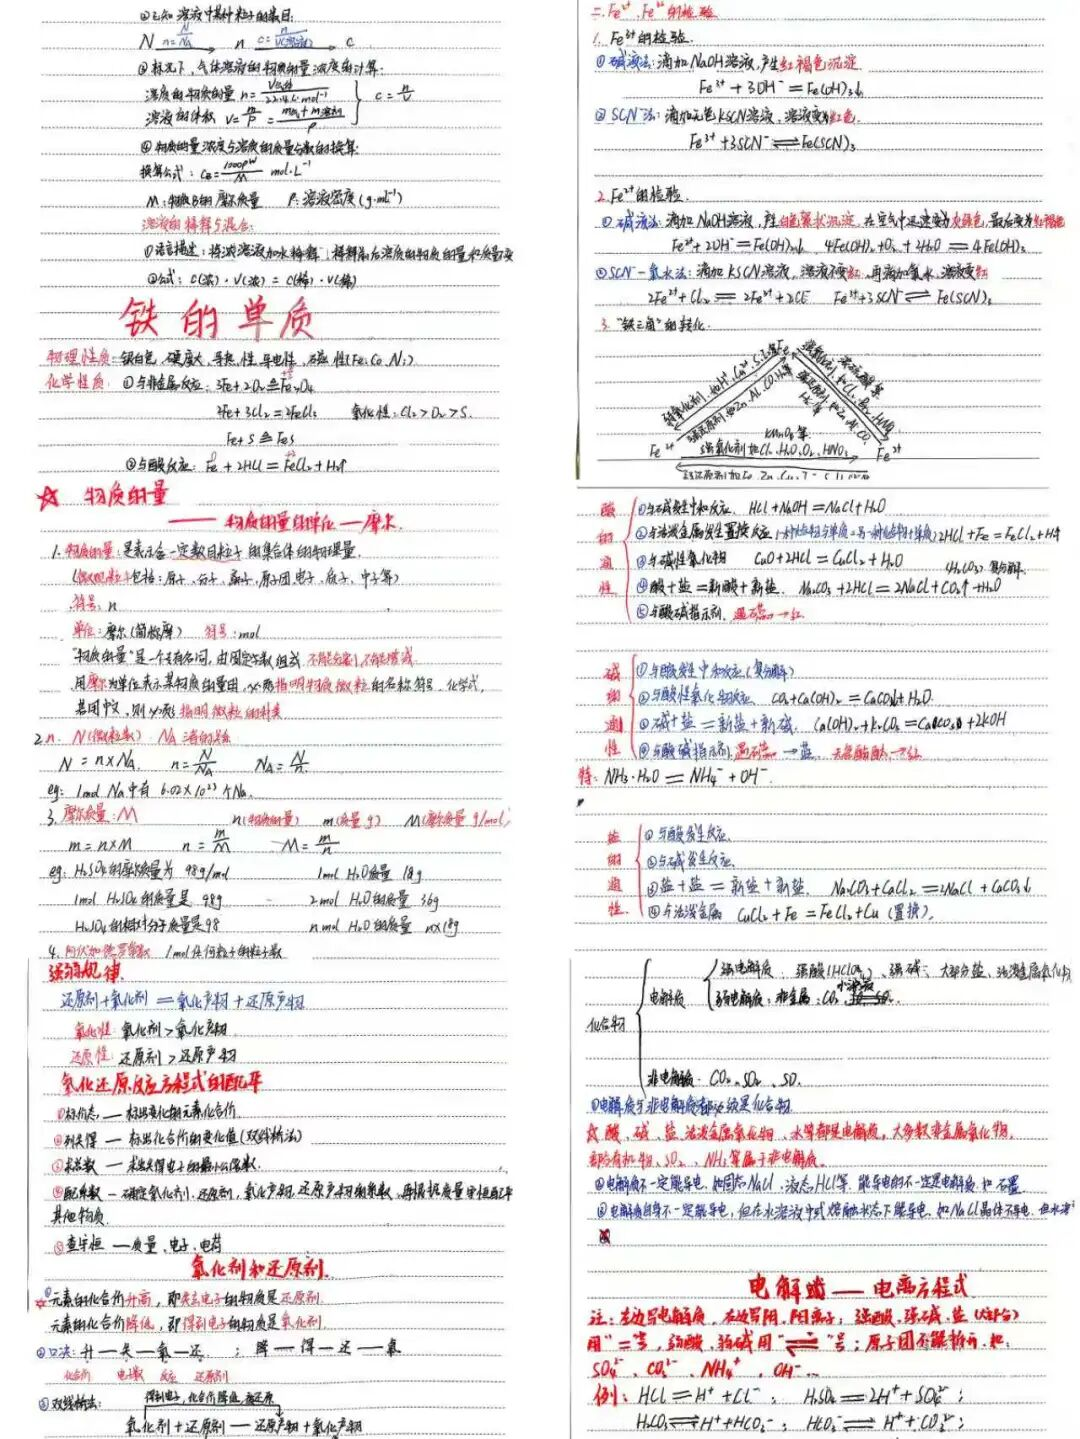 ②已知溶液中某种粒子的数目:
N n=N/NA n c=n/V(溶液) c
③标况下,气体溶液的物质的量浓度的计算:
溶质的物质的量 n=V气体/22.4L·mol⁻¹
溶液的体积 V=m/ρ=m气体+m溶剂/ρ
c=n/V
④物质的量浓度与溶质的质量分数的换算:
换算公式: CB=1000ρw/M mol·L⁻¹
M:物质B的摩尔质量 ρ:溶液密度(g·mL⁻¹)
溶液的稀释与混合:
①语言描述:将浓溶液加水稀释,稀释前后溶质的物质的量和质量不变
②公式: C(浓)·V(浓)=C(稀)·V(稀)
铁的单质
物理性质:银白色、硬度大、导热性、导电性、磁性(Fe、Co、Ni)
化学性质: ①与非金属反应: 3Fe+2O₂≜Fe₃O₄
2Fe+3Cl₂=2FeCl₃ 氧化性:Cl₂>O₂>S
Fe+S≜FeS
②与酸反应: Fe+2HCl=FeCl₂+H₂↑
☆ 物质的量
——物质的量的单位——摩尔
1.物质的量:是表示含一定数目粒子的集合体的物理量
(微观粒子包括:原子、分子、离子、原子团、电子、质子、中子等)
符号: n
单位:摩尔(简称摩) 符号:mol
"物质的量"是一个专有名词,由固定字数组成,不能分割,不能增减
用摩尔为单位表示某物质的量时,必须指明物质微粒的名称、符号、化学式,
若用中文,则必须指明微粒的种类
2.n、N(微粒数)、NA 之间的关系
N=n×NA n=N/NA NA=N/n
eg: 1mol Na中有 6.02×10²³个Na
3.摩尔质量:M n(物质的量) m(质量 g) M(摩尔质量 g/mol)
m=n×M n=m/M M=m/n
eg: H₂SO₄的摩尔质量为 98g/mol 1mol H₂O质量 18g
1mol H₂SO₄的质量是 98g 2mol H₂O的质量 36g
H₂SO₄的相对分子质量是98 nmol H₂O的质量 n×18g
4.阿伏加德罗常数 1mol任何粒子的粒子数
强弱规律
还原剂+氧化剂=氧化产物+还原产物
氧化性:氧化剂>氧化产物
还原性:还原剂>还原产物
氧化还原反应方程式的配平
①标价态——标出变化的元素化合价
②列失得——标出化合价的变化值(双线桥法)
③求总数——求出失得电子的最小公倍数
④配系数——确定氧化剂、还原剂、氧化产物、还原产物的系数,再根据质量守恒配平
其他物质
⑤查守恒——质量、电子、电荷
氧化剂和还原剂
☆①元素的化合价升高,即失去电子的物质是还原剂
元素的化合价降低,即得到电子的物质是氧化剂
②口决:升—失—氧—还; 降—得—还—氧
化合价 电子数 反应 还原剂
③双线桥法: 得到电子,化合价降低,被还原
氧化剂+还原剂——还原产物+氧化产物
二.Fe²⁺、Fe³⁺的检验
1.Fe³⁺的检验
①碱液法:滴加NaOH溶液,产生红褐色沉淀
Fe³⁺+3OH⁻=Fe(OH)₃↓
②SCN⁻法:滴加无色KSCN溶液,溶液变为红色
Fe³⁺+3SCN⁻⇌Fe(SCN)₃
2.Fe²⁺的检验
①碱液法:滴加NaOH溶液,产生白色絮状沉淀,在空气中迅速变为灰绿色,最后变为红褐色
Fe²⁺+2OH⁻=Fe(OH)₂↓ 4Fe(OH)₂+O₂+2H₂O=4Fe(OH)₃
②SCN⁻—氯水法:滴加KSCN溶液,溶液不变红,再滴加氯水,溶液变红
2Fe²⁺+Cl₂=2Fe³⁺+2Cl⁻ Fe³⁺+3SCN⁻⇌Fe(SCN)₃
3."铁三角"的转化
Fe
KMnO₄等
Fe²⁺ 强氧化剂如Cl₂、H₂O₂、O₂、HNO₃ Fe³⁺
酸的通性
①与碱发生中和反应 HCl+NaOH=NaCl+H₂O
②与活泼金属发生置换反应 2HCl+Fe=FeCl₂+H₂↑
③与碱性氧化物 CuO+2HCl=CuCl₂+H₂O
④酸+盐=新酸+新盐 Na₂CO₃+2HCl=2NaCl+CO₂↑+H₂O
⑤与酸碱指示剂 遇石蕊→红
碱的通性
①与酸发生中和反应(复分解)
②与酸性氧化物反应 CO₂+Ca(OH)₂=CaCO₃↓+H₂O
③碱+盐=新盐+新碱 Ca(OH)₂+K₂CO₃=CaCO₃↓+2KOH
④与酸碱指示剂 遇石蕊→蓝 无色酚酞→红
特: NH₃·H₂O=NH₄⁺+OH⁻
盐的通性
①与酸发生反应
②与碱发生反应
③盐+盐=新盐+新盐 Na₂CO₃+CaCl₂=2NaCl+CaCO₃↓
④与活泼金属 CuCl₂+Fe=FeCl₂+Cu(置换)
化合物
电解质
强电解质:强酸(HClO₄)、强碱、大部分盐、活泼金属氧化物
弱电解质:
非电解质:CO₂、SO₂、SO₃
①电解质与非电解质都必须是化合物
☆酸、碱、盐、活泼金属氧化物、水等都是电解质,大多数非金属氧化物,
部分有机物、SO₂、NH₃等属于非电解质。
②电解质不一定能导电,如固态NaCl,液态HCl等,能导电的不一定是电解质,如石墨
③电解质自身不一定能导电,但在水溶液中或熔融状态下能导电,如NaCl晶体不导电,但水溶
电解域——电离方程式
注:左边写电解质,右边写阴、阳离子;强酸、强碱、盐(大部分)
用"="号,弱酸、弱碱用"⇌"号;原子团不能拆开,如:
SO₄²⁻、CO₃²⁻、NH₄⁺、OH⁻...
例: HCl=H⁺+Cl⁻; H₂SO₄=2H⁺+SO₄²⁻;
H₂CO₃⇌H⁺+HCO₃⁻; HCO₃⁻⇌H⁺+CO₃²⁻;